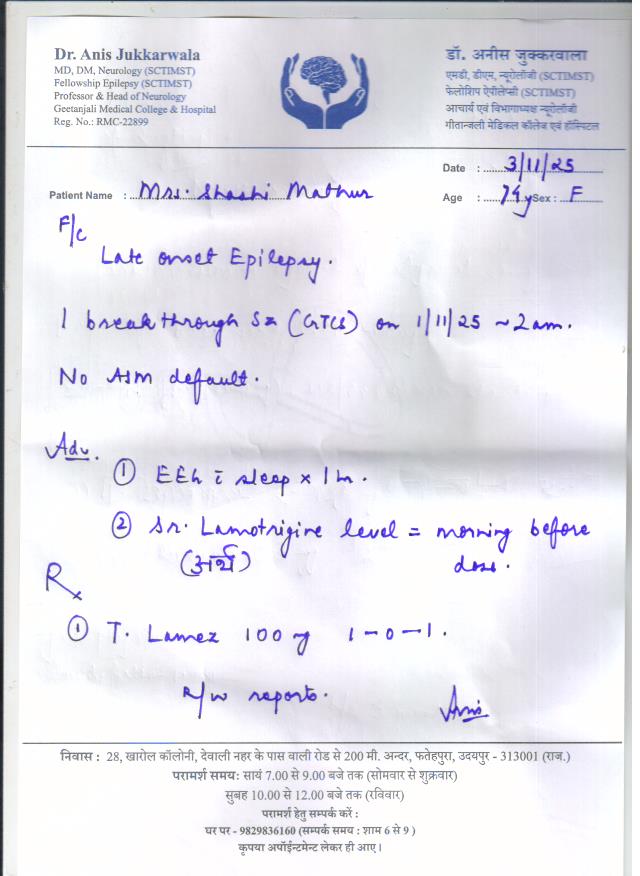 Dr. Anis Jukkarwala
MD, DM, Neurology (SCTIMST)
Fellowship Epilepsy (SCTIMST)
Professor & Head of Neurology
Geetanjali Medical College & Hospital
Reg. No.: RMC-22899
डॉ. अनीस जुक्करवाला
एमडी, डीएम, न्यूरोलॉजी (SCTIMST)
फेलोशिप ऐपीलेप्सी (SCTIMST)
आचार्य एवं विभागाध्यक्ष न्यूरोलॉजी
गीतान्जली मेडिकल कॉलेज एवं हॉस्पिटल
Date : 3/11/25
Patient Name : Mrs. Shashi Mathur
Age : 74y Sex : F
F/c
Late onset Epilepsy.
1 breakthrough Sz (GTCS) on 1/11/25 ~ 2am.
No ASM default.
Adv.
① EEG c̅ sleep x 1 hr.
② Sr. Lamotrigine level = morning before
(अर्थ) dose.
Rx
① T. Lamez 100 mg 1-0-1.
R/w reports.
Anis
निवास : 28, खारोल कॉलोनी, देवाली नहर के पास वाली रोड से 200 मी. अन्दर, फतेहपुरा, उदयपुर - 313001 (राज.)
परामर्श समय: सायं 7.00 से 9.00 बजे तक (सोमवार से शुक्रवार)
सुबह 10.00 से 12.00 बजे तक (रविवार)
परामर्श हेतु सम्पर्क करें :
घर पर - 9829836160 (सम्पर्क समय : शाम 6 से 9 )
कृपया अपॉईन्टमेन्ट लेकर ही आए।